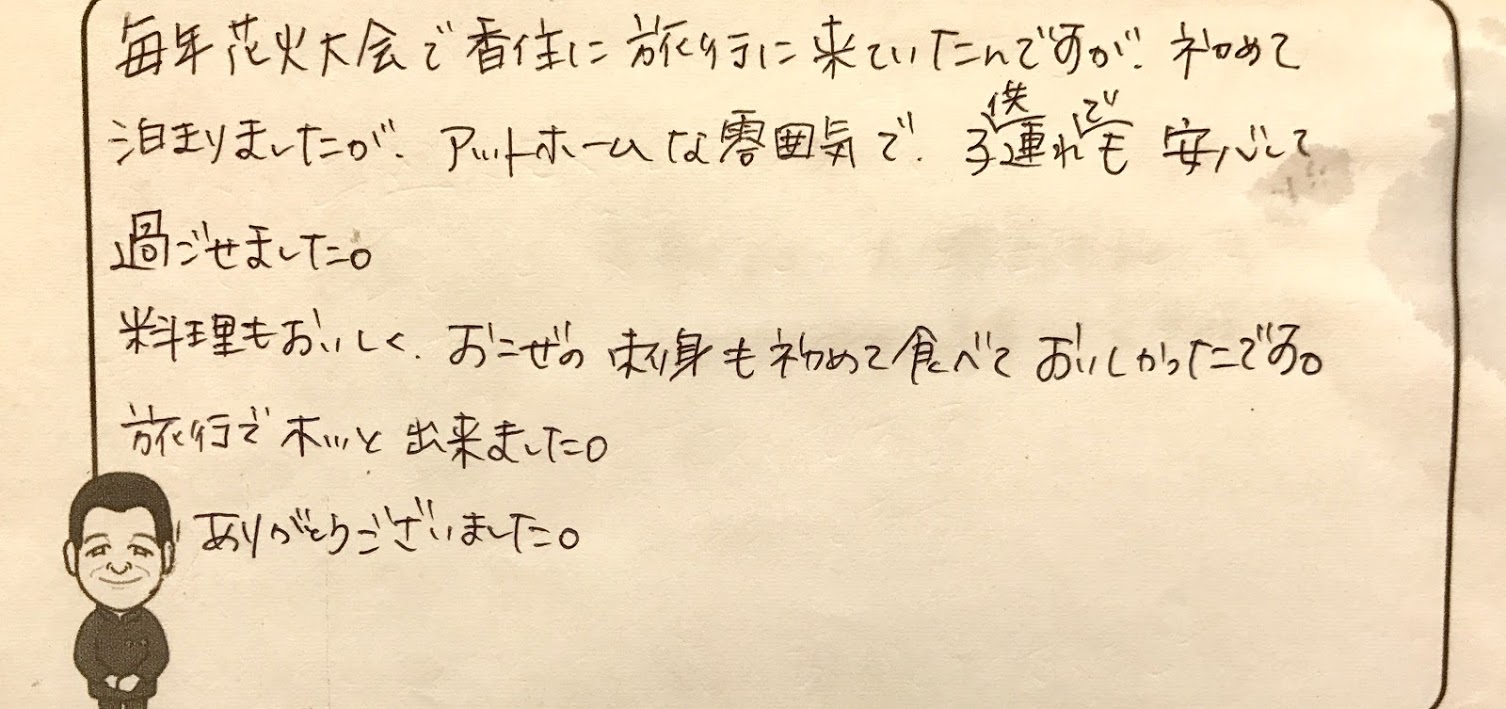 毎年花火大会で香住に旅行に来ていたんですが、初めて
泊まりましたが、アットホームな雰囲気で、子供連れでも安心して
過ごせました。
料理もおいしく、おこぜの刺身も初めて食べておいしかったです。
旅行でホッと出来ました。
ありがとうございました。